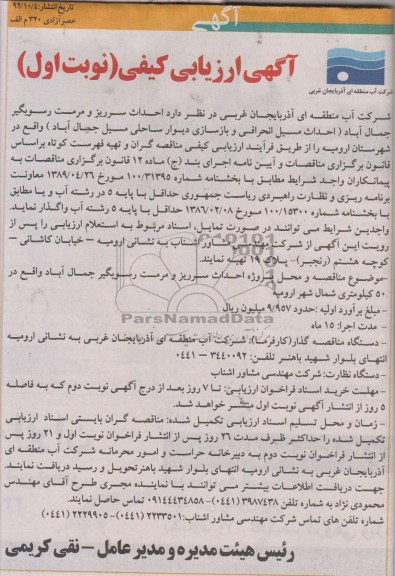 تاریخ انتشار: ۹۲/۱۰/۴
عصر آزادی ۳۲۰ م الف
آگهی
آگهی ارزیابی کیفی (نوبت اول)
شرکت آب منطقه ای آذربایجان غربی
شرکت آب منطقه ای آذربایجان غربی در نظر دارد احداث سرریز و مرمت رسوبگیر
جمال آباد ( احداث مسیل انحرافی و بازسازی دیوار ساحلی مسیل جمال آباد ) واقع در
شهرستان ارومیه را از طریق فرآیند ارزیابی کیفی مناقصه گران و تهیه فهرست کوتاه براساس
قانون برگزاری مناقصات و آیین نامه اجرای بند (ج) ماده ۱۲ قانون برگزاری مناقصات به
پیمانکاران واجد شرایط مطابق با بخشنامه شماره ۱۰۰/۳۱۳۹۵ مورخ ۱۳۸۹/۰۴/۲۶ معاونت
برنامه ریزی و نظارت راهبردی ریاست جمهوری حداقل با پایه ۵ در رشته آب و یا مطابق
با بخشنامه شماره ۱۰۰/۱۵۳۰۰ مورخ ۱۳۸۶/۰۲/۰۸ حداقل با پایه ۵ رشته آب واگذار نماید.
واجدین شرایط می توانند در صورت تمایل، اسناد مرتبط به استعلام ارزیابی را پس از
رویت این آگهی از شرکت مهندسی مشاور اشناب به نشانی ارومیه – خیابان کاشانی –
کوچه هشتم (رنجبر) – پلاک ۱۹ تهیه نمایند.
-موضوع مناقصه و محل پروژه احداث سرریز و مرمت رسوبگیر جمال آباد واقع در
۵۰ کیلومتری شمال شهر ارومیه
- مبلغ برآورد اولیه :حدود ۹/۹۵۷ میلیون ریال
- مدت اجرا: ۱۵ ماه
- دستگاه مناقصه گذار (کارفرما): شرکت آب منطقه ای آذربایجان غربی به نشانی ارومیه
انتهای بلوار شهید باهنر تلفن: ۳۴۴۰۰۹۲ – ۰۴۴۱
- دستگاه نظارت: شرکت مهندسی مشاور اشناب
- مهلت خرید اسناد فراخوان ارزیابی: تا ۷ روز بعد از درج آگهی نوبت دوم که به فاصله
۵ روز از انتشار آگهی نوبت اول منتشر خواهد شد.
- زمان و محل تسلیم اسناد ارزیابی تکمیل شده: مناقصه گران بایستی اسناد ارزیابی
تکمیل شده را حداکثر ظرف مدت ۲۶ روز پس از انتشار فراخوان نوبت اول و ۲۱ روز پس
از انتشار فراخوان نوبت دوم به دبیرخانه حراست و امور محرمانه شرکت آب منطقه ای
آذربایجان غربی به نشانی ارومیه انتهای بلوار شهید باهنر تحویل و رسید دریافت نمایند.
جهت دریافت اطلاعات بیشتر می توانند با نماینده مجری طرح آقای مهندس
محمودی نژاد به شماره تلفن ۳۹۸۷۴۳۸ (۰۴۴۱)- ۰۹۱۴۴۴۳۴۸۵۸ تماس حاصل نمایند.
شماره تلفن های تماس شرکت مهندسی مشاور اشناب: ۲۲۳۳۵۰۱ (۰۴۴۱)- ۲۲۲۹۹۰۵ (۰۴۴۱)
رئیس هیئت مدیره و مدیر عامل – نقی کریمی
ParsNamadData